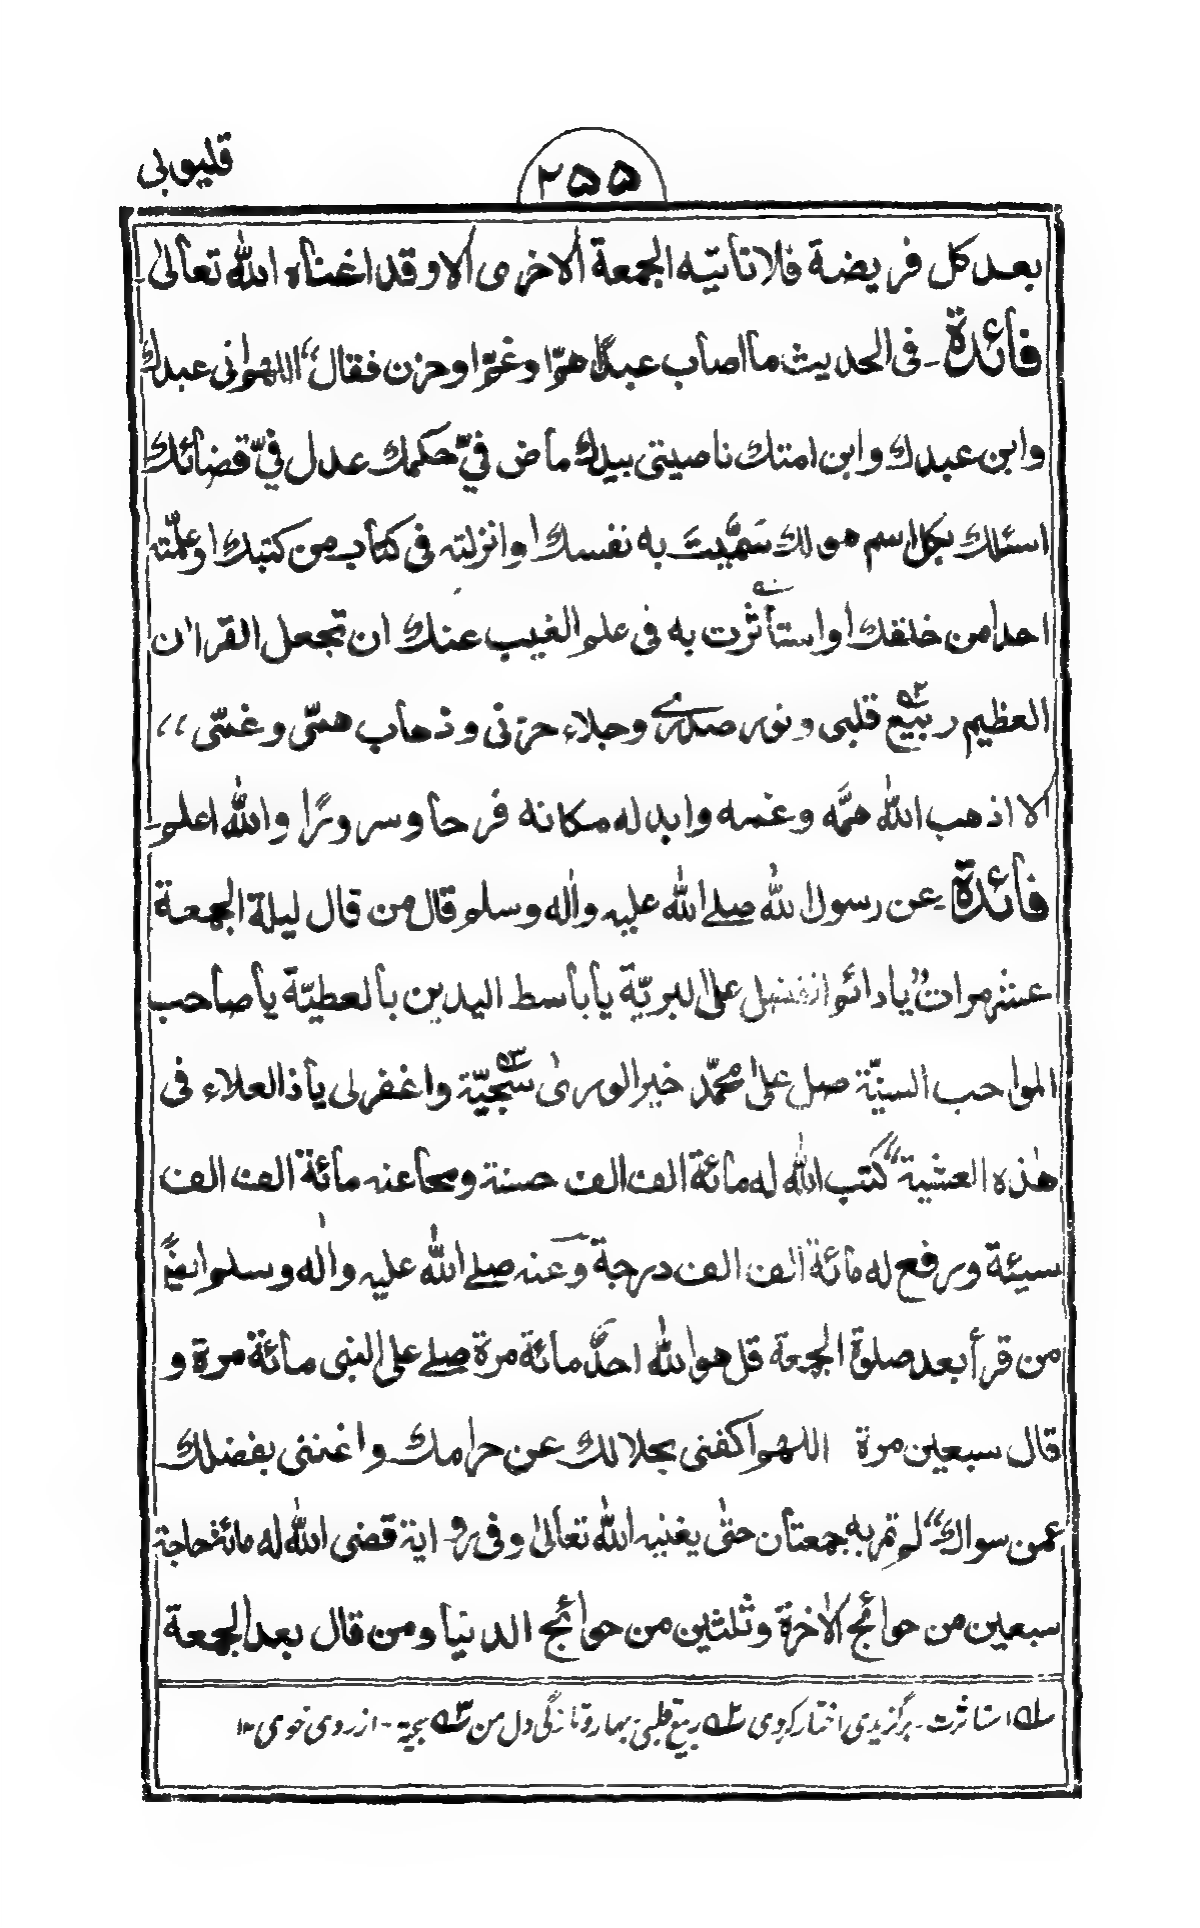 قلیوبی
۲۵۵
بعد کل فریضة فلا تأتیه الجمعة الاخری الا وقد اغناه الله تعالیٰ
فائدة ۔ فی الحدیث ما اصاب عبدًا همّا وغمّا وحزن فقال “اللهم انی عبدك
وابن عبدك وابن امتك ناصیتی بیدك ماض فیّ حکمك عدل فیّ قضائك
اسئلك بکل اسم هو لك سَمَّیتَ به نفسك او انزلته فی کتاب من کتبك او علّمته
احدا من خلقك او استأثرت به فی علم الغیب عندك ان تجعل القراٰن
العظیم ربیع قلبی ونور صدری وجلاء حزنی وذهاب همّی وغمّی ،،
الا اذهب الله همَّه وغمه وابدله مکانه فرحا وسرورًا والله اعلم
فائدة ۔ عن رسول الله صلے الله علیه واٰله وسلم قال من قال لیلة الجمعة
عشر مرات “یا دائم الفضل علی البریّة یا باسط الیدین بالعطیّة یا صاحب
المواهب السنیّة صل علیٰ محمّد خیر الوریٰ سجیّة واغفر لی یا ذا العلاء فی
هٰذه العشیة” کتب الله له مائة الف الف حسنة ومحا عنه مائة الف الف
سیئة ورفع له مائة الف الف درجة وعنه صلے الله علیه واٰله وسلم ایضًا
من قرأ بعد صلوة الجمعة قل هو الله احدٌ مائة مرة صلے علی النبی مائة مرة و
قال سبعین مرة اللهم اکفنی بحلالك عن حرامك واغننی بفضلك
عمن سواك” لم تمر به جمعتان حتٰی یغنیه الله تعالیٰ وفی روایة قضی الله له مائة حاجة
سبعین من حوائج الاٰخرة وثلثین من حوائج الدنیا ومن قال بعد الجمعة
۱ استاثرت ۔ برگزیدی اختیار کردی ۲ ربیع قلبی ۔ بهار وتازگی دل من ۳ سجیة ۔ از روی خوی ۱۲